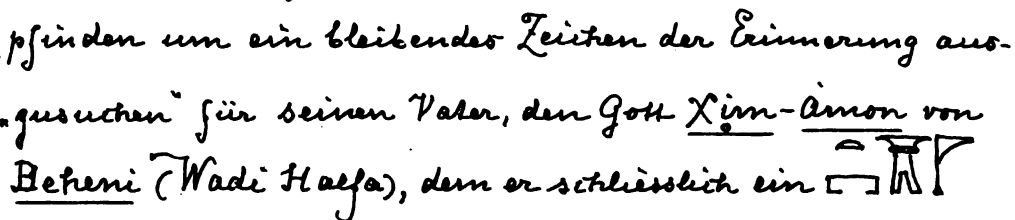 pfinden um ein bleibendes Zeichen der Erinnerung aus-
„gusuchen“ für seinen Vater, den Gott Xịm-Amon von
Beheni (Wadi Halfa), dem er schliesslich ein